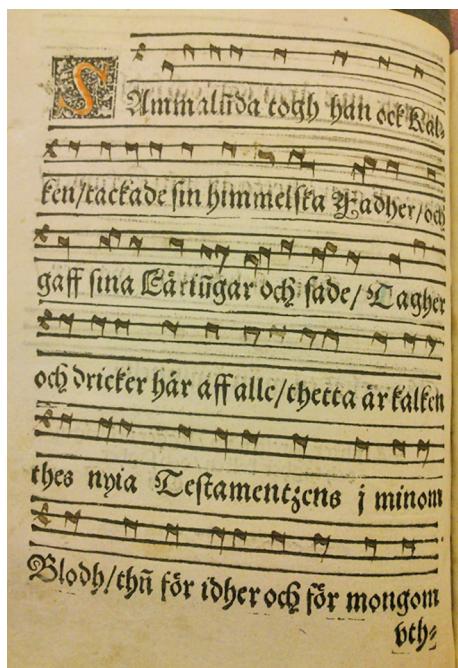 SAmmalūda togh han ock Kal⸗
ken/tackade sin himmelska Fadher/och
gaff sina Läriūgar och sade/Tagher
och dricker här aff alle/thetta är kalken
thes nyia Testamentzens j minom
Blodh/thū för idher och för mongom
vth⸗